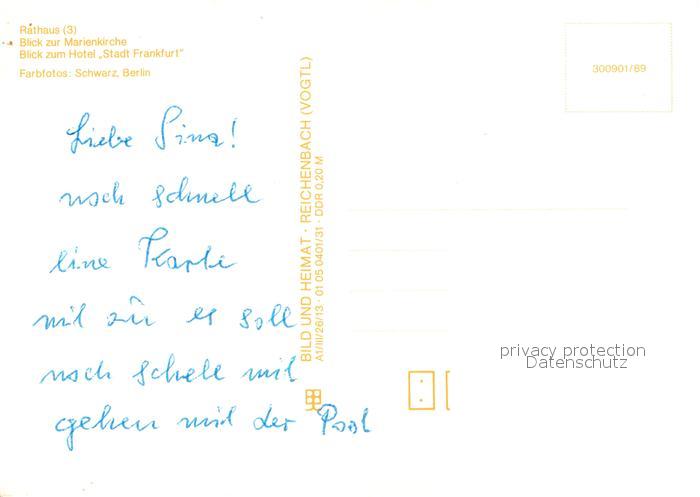 Rathaus (3)
Blick zur Marienkirche
Blick zum Hotel „Stadt Frankfurt"
Farbfotos: Schwarz, Berlin
300901/89
Liebe Sina!
noch schnell
eine Karte
mit es soll
noch mit
gehen mit der Post
BILD UND HEIMAT · REICHENBACH (VOGTL)
A1/III/26/13 · 01 05 0401/31 · DDR 0,20 M
privacy protection
Datenschutz